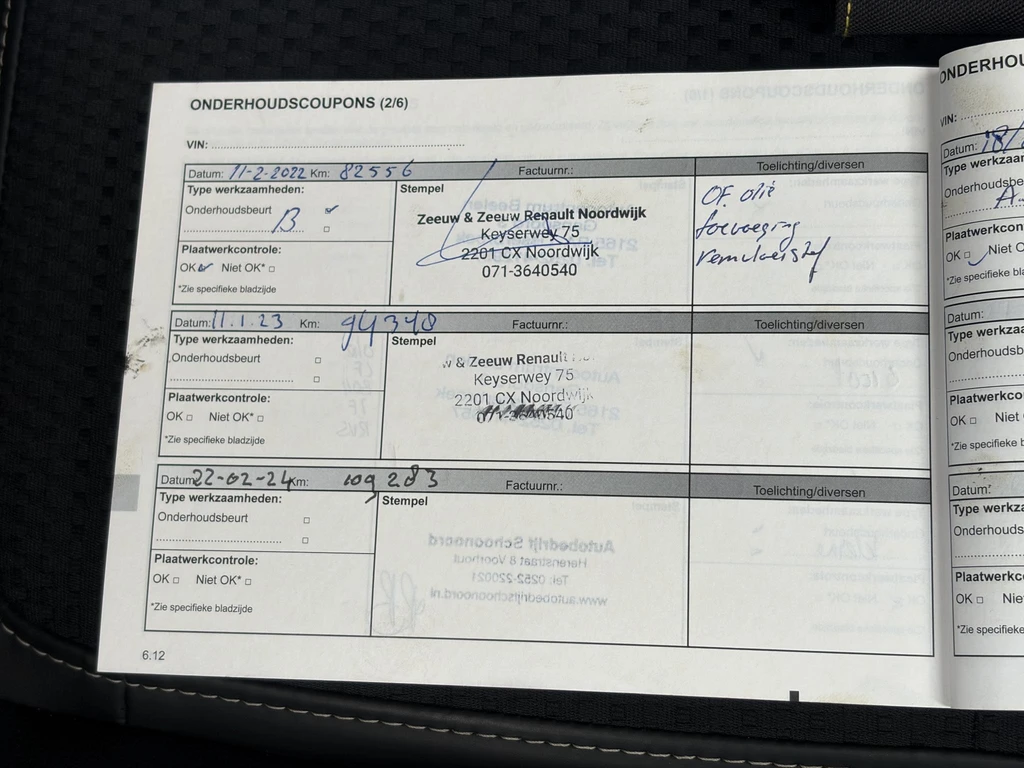 ONDERHOUDSCOUPONS (2/6)
VIN:
Datum: 11-2-2022 Km: 82556 Factuurnr.: Toelichting/diversen
Type werkzaamheden: Stempel
Onderhoudsbeurt
B
Plaatwerkcontrole:
OK Niet OK*
*Zie specifieke bladzijde
Zeeuw & Zeeuw Renault Noordwijk
Keyserwey 75
2201 CX Noordwijk
071-3640540
OF. olie
toevoeging
remvloeistof
Datum: 11.1.23 Km: 94348 Factuurnr.: Toelichting/diversen
Type werkzaamheden: Stempel
Onderhoudsbeurt
Plaatwerkcontrole:
OK Niet OK*
*Zie specifieke bladzijde
w & Zeeuw Renault
Keyserwey 75
2201 CX Noordwijk
071-3640540
Datum: 22-02-24 Km: 109283 Factuurnr.: Toelichting/diversen
Type werkzaamheden: Stempel
Onderhoudsbeurt
Plaatwerkcontrole:
OK Niet OK*
*Zie specifieke bladzijde
6.12
ONDERHOU
VIN:
Datum: 18/
Type werkza
Onderhoudsbe
A
Plaatwerkcont
OK Niet O
*Zie specifieke b
Datum:
Type werkza
Onderhoudsb
Plaatwerkco
OK Niet
*Zie specifieke
Datum:
Type werkza
Onderhoudsb
Plaatwerkco
OK Nie
*Zie specifieke